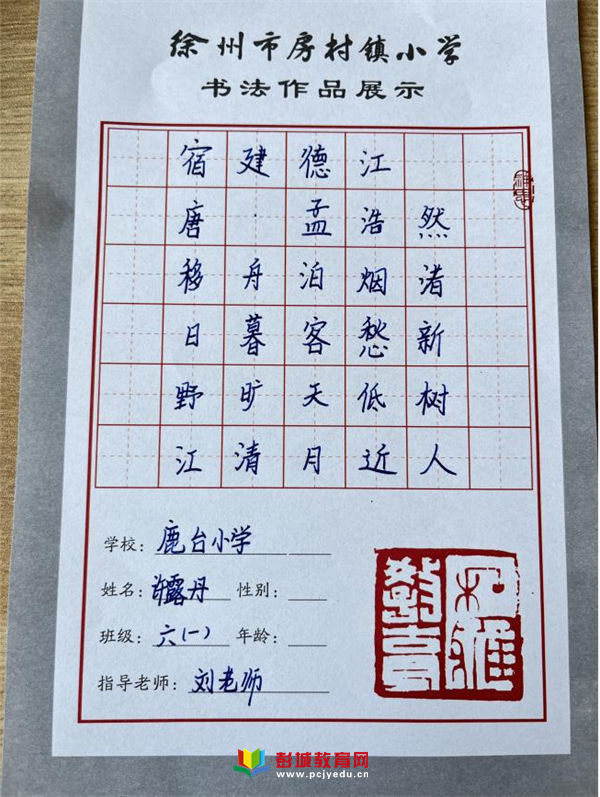 徐州市房村镇小学
书法作品展示
宿建德江
唐 孟浩然
移舟泊烟渚
日暮客愁新
野旷天低树
江清月近人
学校：鹿台小学
姓名：许露丹 性别：
班级：六（一） 年龄：
指导老师：刘老师
彭城教育网
www.pcjyedu.cn